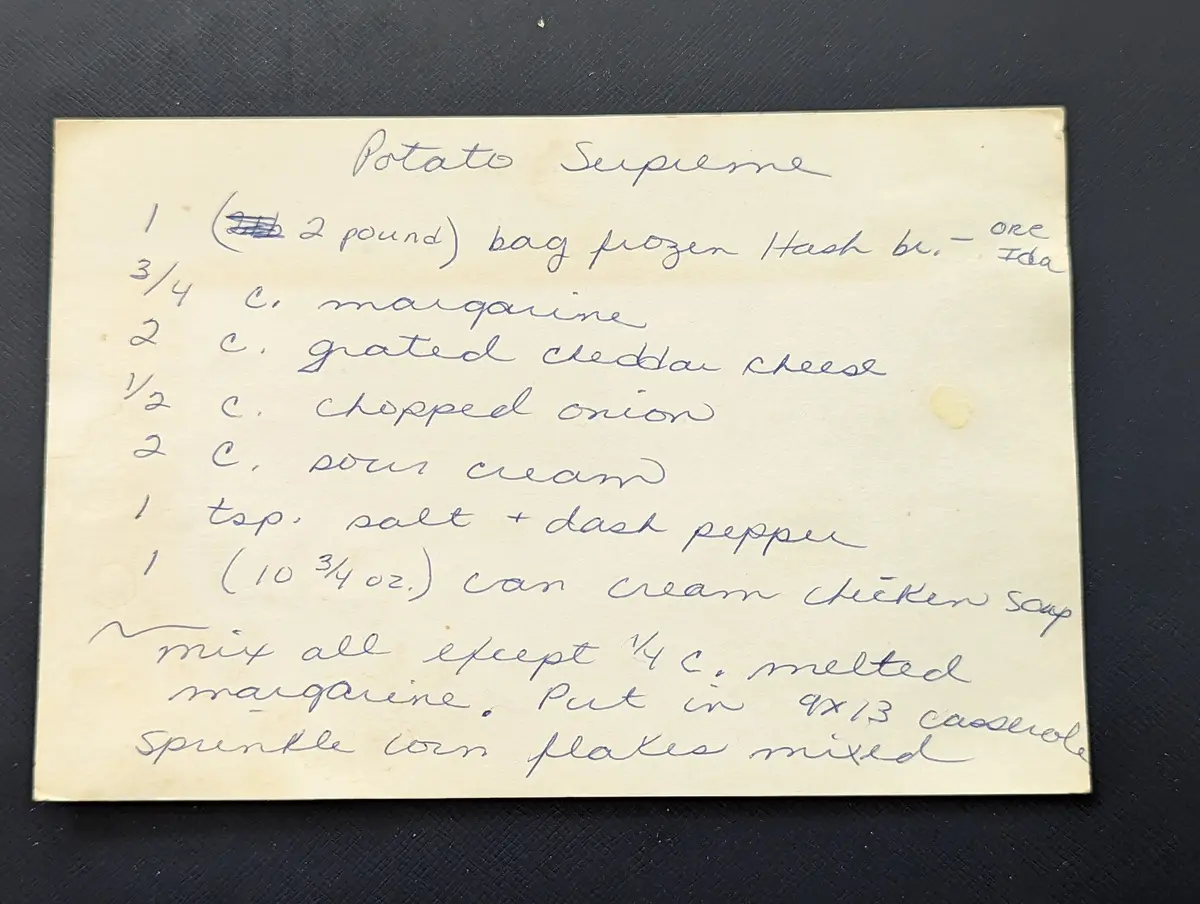 Potato Supreme
1 (2 pound) bag frozen Hash br. - ore Ida
3/4 c. margarine
2 c. grated cheddar cheese
1/2 c. chopped onion
2 c. sour cream
1 tsp. salt + dash pepper
1 (10 3/4 oz.) can cream chicken soup
~ mix all except 1/4 c. melted
margarine. Put in 9x13 casserole
Sprinkle corn flakes mixed